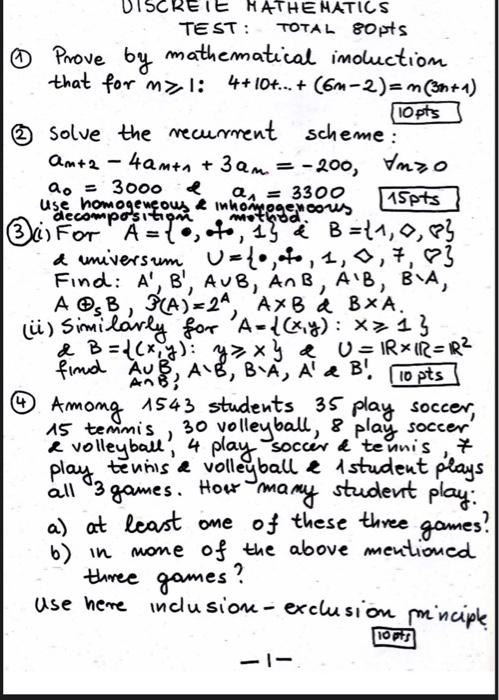 DISCRETE MATHEMATICS
TEST: TOTAL 80pts
① Prove by mathematical induction
that for n⩾1: 4+10+...+(6n-2)=n(3n+1)
10pts
② Solve the recurrent scheme:
aₙ₊₂ - 4aₙ₊₁ + 3aₙ = -200, ∀n⩾0
a₀ = 3000 & a₁ = 3300 15pts
use homogeneous & inhomogeneous
decomposition method.
③ (i) For A={•,♣,1} & B={1,◇,♡}
& universum U={•,♣,1,◇,7,♡}
Find: A', B', A∪B, A∩B, A\B, B\A,
A ⊕ₛ B, P(A)=2ᴬ, A×B & B×A.
(ii) Similarly for A={(x,y): x⩾1}
& B={(x,y): y⩾x} & U=ℝ×ℝ=ℝ²
find A∪B, A\B, B\A, A' & B'. 10pts
A∩B,
④ Among 1543 students 35 play soccer,
15 tennis, 30 volleyball, 8 play soccer
& volleyball, 4 play soccer & tennis, 7
play tennis & volleyball & 1 student plays
all 3 games. How many student play:
a) at least one of these three games?
b) in none of the above mentioned
three games?
Use here inclusion-exclusion principle
10pts
-1-